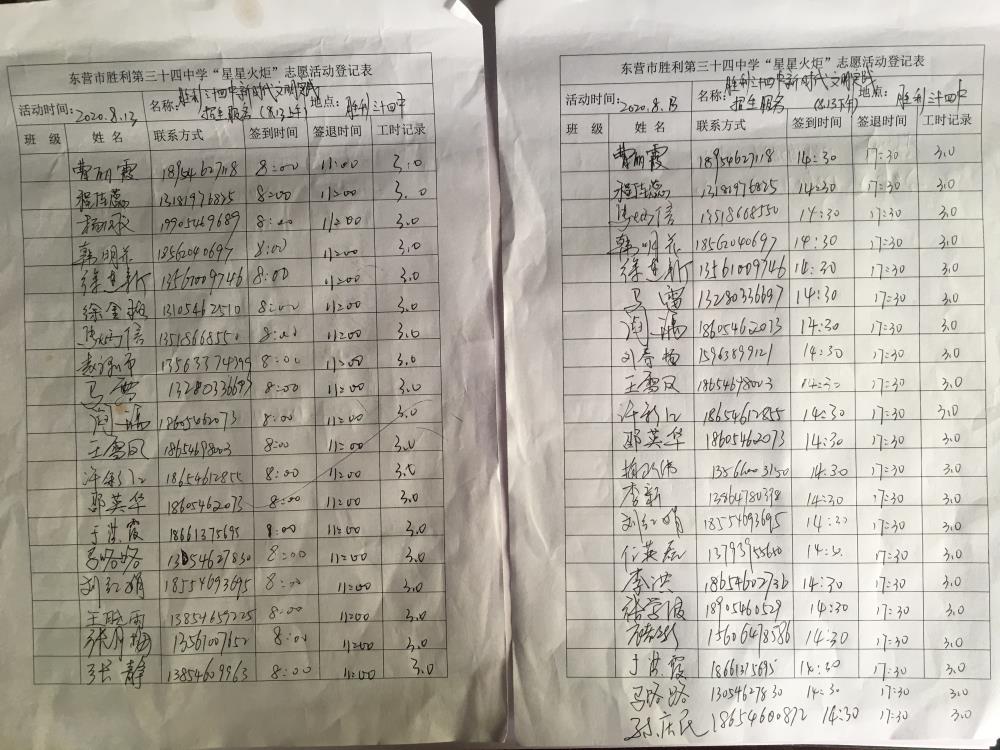 东营市胜利第三十四中学“星星火炬”志愿活动登记表
活动时间: 2020.8.13 名称: 胜利三十四中新时代文明实践 招生服务(8.13上午) 地点: 胜利三十四中
班 级 姓 名 联系方式 签到时间 签退时间 工时记录
曹丽霞 18954627118 8:00 11:00 3.0
13181976825 8:00 11:00 3.0
19905469689 8:00 11:00 3.0
韩明花 18562040697 8:00 11:00 3.0
徐建新 13561009746 8:00 11:00 3.0
徐金 13105462510 8:00 11:00 3.0
13518668550 8:00 11:00 3.0
8:00 11:00 3.0
马雷 13280336697 8:00 11:00 3.0
18605462073 8:00 11:00 3.0
王雪凤 18654698003 8:00 11:00 3.0
18654612855 8:00 11:00 3.0
郭英华 18605462073 8:00 11:00 3.0
于洪霞 18661375695 8:00 11:00 3.0
马晓路 13054627830 8:00 11:00 3.0
刘红娟 18554693695 8:00 11:00 3.0
王晓雨 13854659225 8:00 11:00 3.0
张月梅 13561007652 8:00 11:00 3.0
张静 13854609963 8:00 11:00 3.0
东营市胜利第三十四中学“星星火炬”志愿活动登记表
活动时间: 2020.8.13 名称: 胜利三十四中新时代文明实践 招生服务(8.13下午) 地点: 胜利三十四中
班 级 姓 名 联系方式 签到时间 签退时间 工时记录
曹丽霞 18954627118 14:30 17:30 3.0
13181976825 14:30 17:30 3.0
13518668550 14:30 17:30 3.0
韩明花 18562040697 14:30 17:30 3.0
徐建新 13561009746 14:30 17:30 3.0
马雷 13280336697 14:30 17:30 3.0
18605462073 14:30 17:30 3.0
刘春梅 15963899121 14:30 17:30 3.0
王雪凤 18654698003 14:30 17:30 3.0
18654612855 14:30 17:30 3.0
郭英华 18605462073 14:30 17:30 3.0
14:30 17:30 3.0
李新 13864780398 14:30 17:30 3.0
刘红娟 18554693695 14:30 17:30 3.0
任英磊 14:30 17:30 3.0
李洪 18654602736 14:30 17:30 3.0
张学波 18905460529 14:30 17:30 3.0
15606478586 14:30 17:30 3.0
于洪霞 18661375695 14:30 17:30 3.0
马晓路 13054627830 14:30 17:30 3.0
孙庆民 18654600872 14:30 17:30 3.0